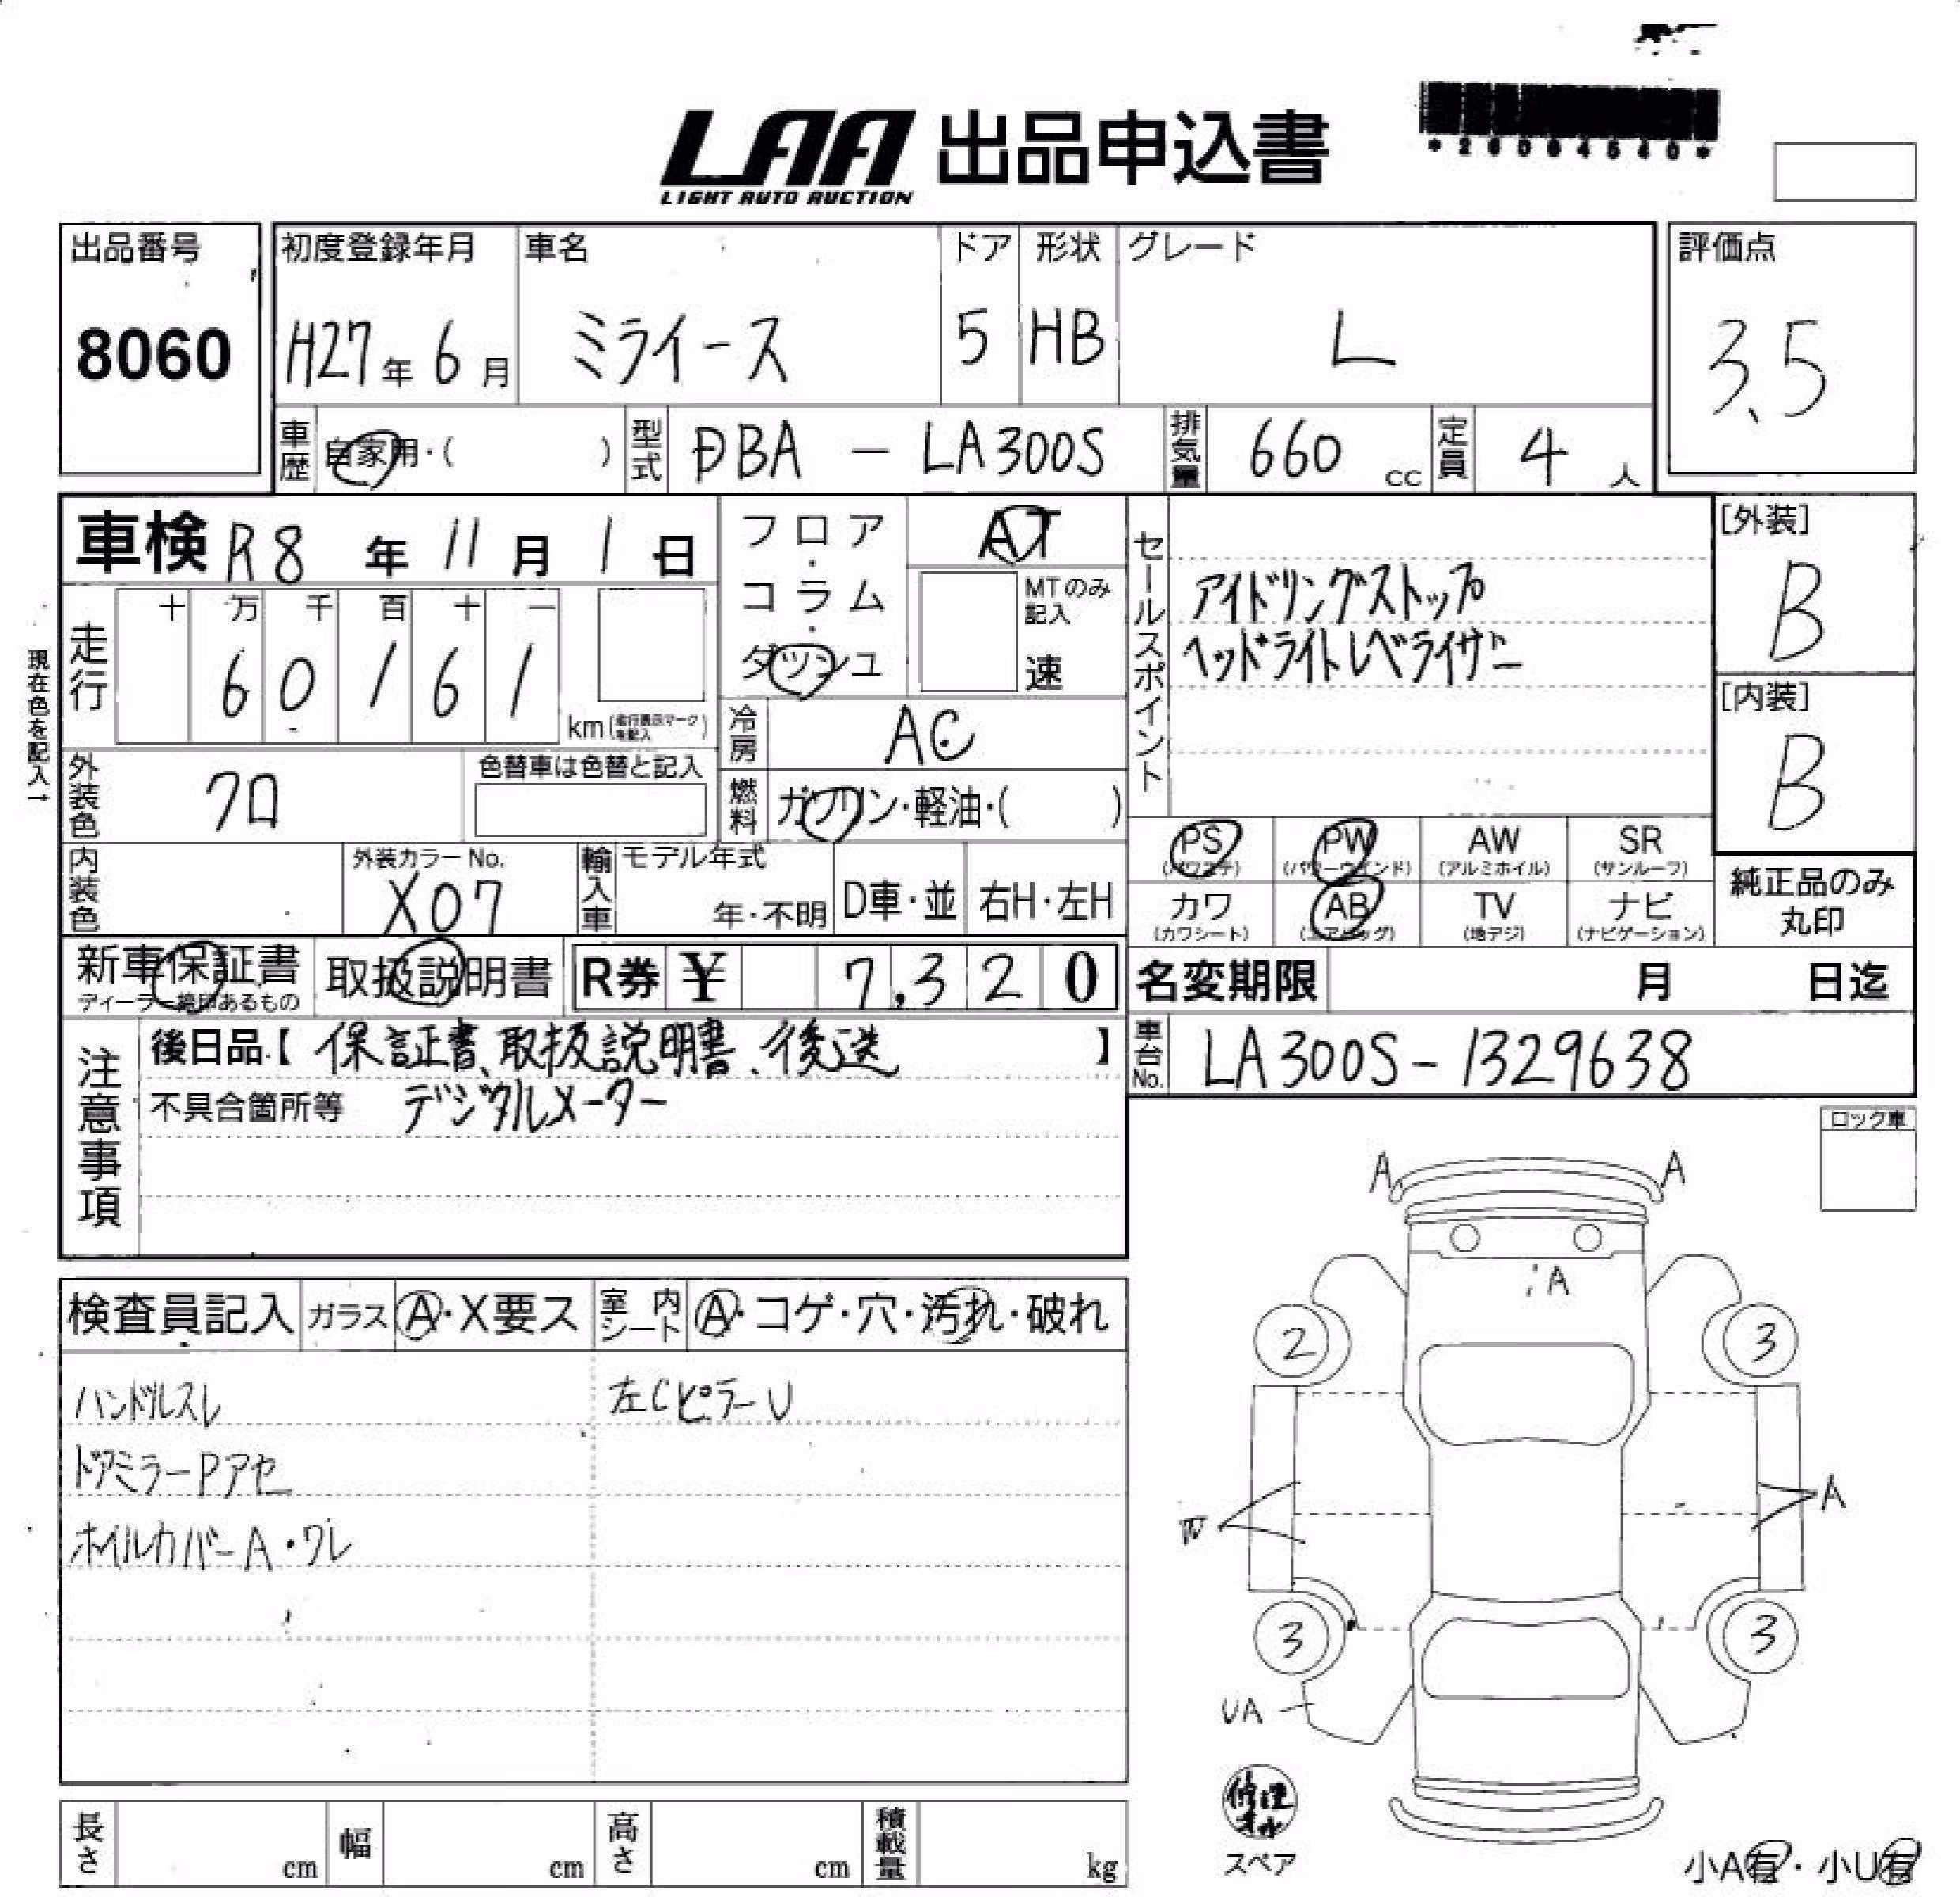 LAA 出品申込書
LIGHT AUTO AUCTION
出品番号
8060
初度登録年月 車名 ドア 形状 グレード
H27年 6月 ミライース 5 HB L
評価点
3.5
車歴 自家用・( ) 型式 DBA - LA300S 排気量 660 cc 定員 4 人
車検 R8 年 11 月 1 日
フロア・コラム・ダッシュ
AT
MTのみ記入
速
セールスポイント
アイドリングストップ
ヘッドライトレベライザー
[外装]
B
[内装]
B
現在色を記入→
走行 十 万 千 百 十 一
6 0 1 6 1
km (走行表示マークを記入)
冷房 AC
外装色 クロ 色替車は色替と記入
燃料 ガソリン・軽油・( )
内装色 外装カラーNo.
X07
輸入車 モデル年式
年・不明 D車・並 右H・左H
PS (パワステ) PW (パワーウインド) AW (アルミホイル) SR (サンルーフ)
カワ (カワシート) AB (エアバッグ) TV (地デジ) ナビ (ナビゲーション)
純正品のみ
丸印
新車保証書
ディーラー捺印あるもの
取扱説明書 R券 ¥ 7,320
名変期限 月 日迄
車台No. LA300S-1329638
注意事項
後日品【 保証書、取扱説明書、後送 】
不具合箇所等 デジタルメーター
ロック車
A A
A
2 3
W A
3 3
UA
スペア
小A有・小U有
検査員記入 ガラス A・X要ス 室内シート A・コゲ・穴・汚れ・破れ
ハンドルスレ 左CピラーU
ドアミラーPアセ
ホイルカバーA・ワレ
長さ cm 幅 cm 高さ cm 積載量 kg